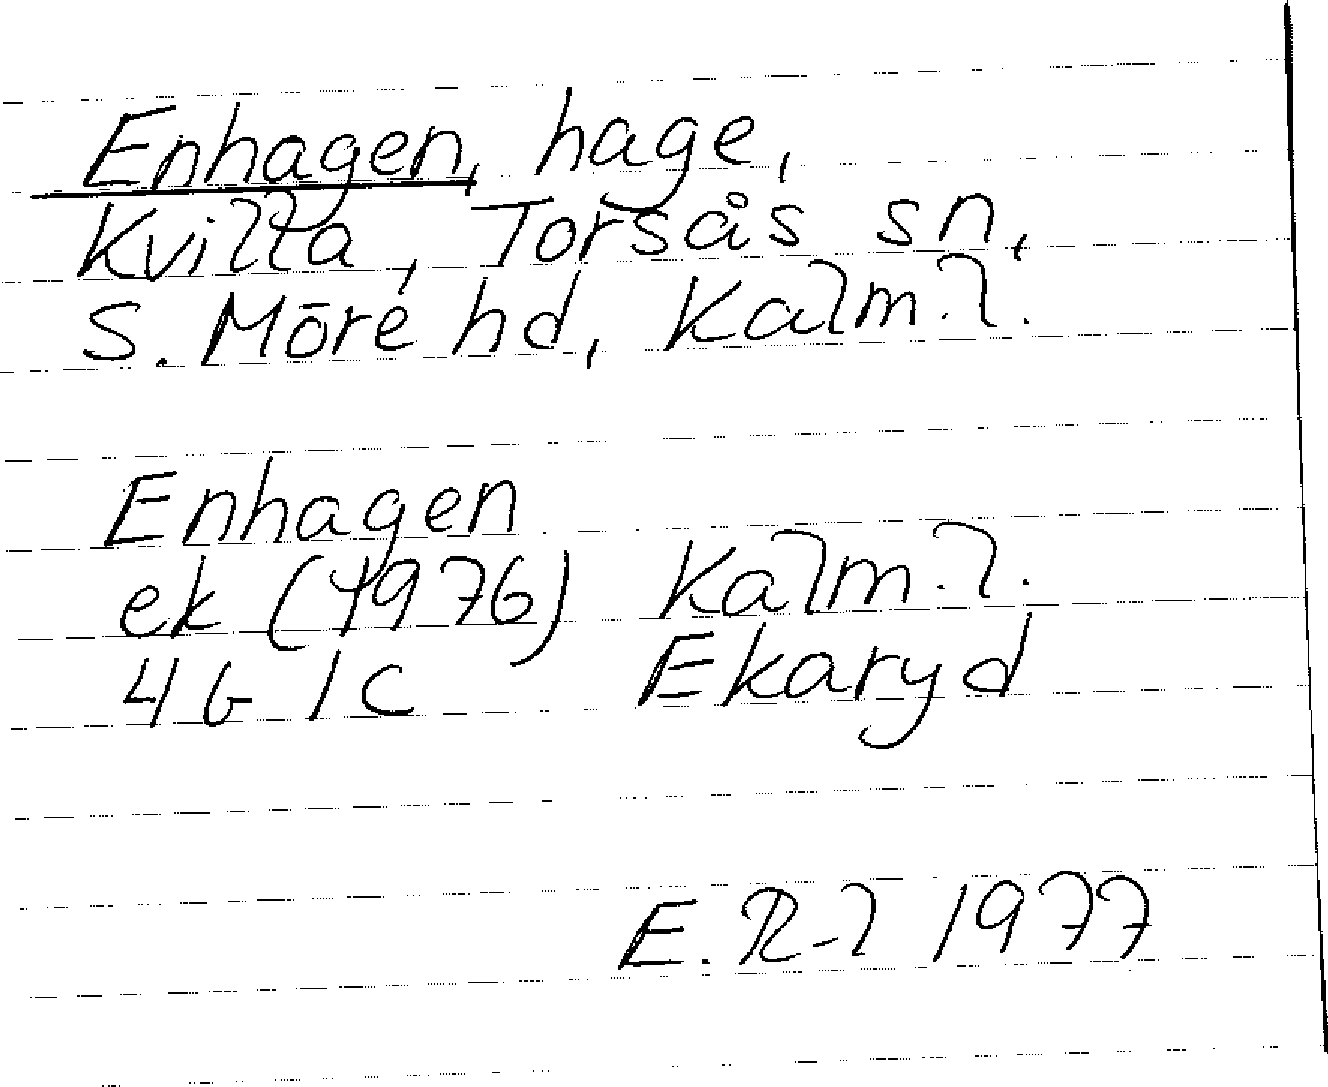 Enhagen, hage,
Kvilla, Torsås sn,
S. Möre hd, Kalm. l.
Enhagen
ek (1976) Kalm. l.
4G 1c Ekaryd
E. R-l 1977